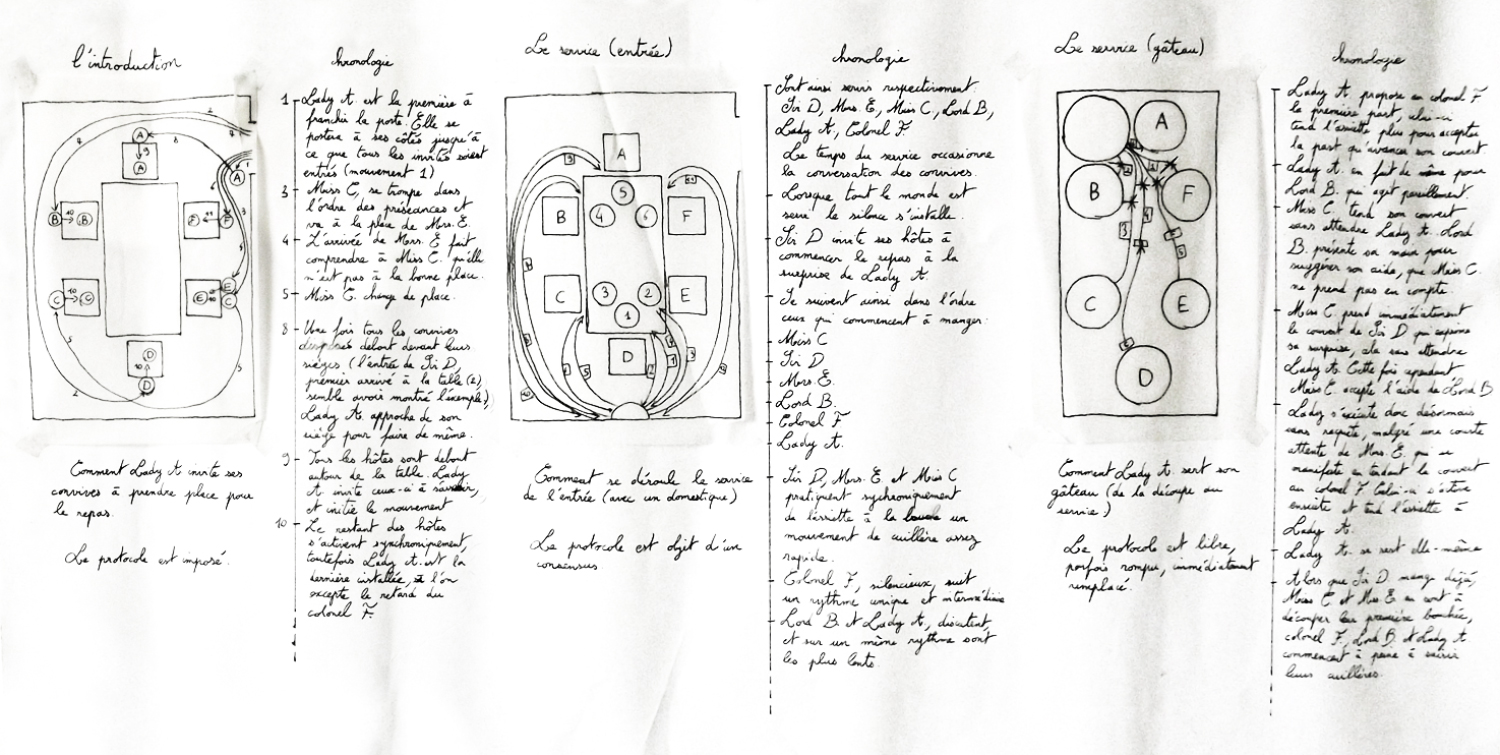 l'introduction
Chronologie
1
Lady A. est la première à
franchir la porte. Elle se
postera à ses côtés jusqu'à
ce que tous les invités soient
entrés (mouvement 1)
3
Miss C, se trompe dans
l'ordre des préséances et
va à la place de Mrs. E.
4
L'arrivée de Mrs. E fait
comprendre à Miss C. qu'elle
n'est pas à la bonne place.
5
Miss C. change de place.
8
Une fois tous les convives
disposés debout devant leurs
sièges. (l'entrée de Sir D,
premier arrivé à la table (2)
semble avoir montré l'exemple)
Lady A approche de son
siège pour faire de même.
9
Tous les hôtes sont debout
autour de la table. Lady
A invite ceux-ci à s'asseoir,
et initie le mouvement
10
Le restant des hôtes
s'activent synchroniquement,
toutefois Lady A. est la
dernière installée, si l'on
excepte le retard du
colonel F.
A
A
B
B
C
C
D
D
E
E
C
F
F
A
Comment Lady A invite ses
convives à prendre place pour
le repas.
Le protocole est imposé.
Le service (entrée)
A
B
C
D
E
F
5
4
6
3
2
1
Comment se déroule le service
de l'entrée (avec un domestique)
Le protocole est objet d'un
consensus.
Chronologie
Sont ainsi servis respectivement:
Sir D, Mrs. E, Miss C, Lord B,
Lady A, Colonel F.
Le temps du service occasionne
la conversation des convives.
Lorsque tout le monde est
servi le silence s'installe.
Sir D invite ses hôtes à
commencer le repas à la
surprise de Lady A.
Se suivent ainsi dans l'ordre
ceux qui commencent à manger:
Miss C
Sir D
Mrs. E.
Lord B.
Colonel F
Lady A.
Sir D, Mrs. E. et Miss C
pratiquent sychroniquement
de l'assiette à la bouche un
mouvement de cuillère assez
rapide.
Colonel F, silencieux, suit
un rythme unique et intermédiaire
Lord B. et Lady A, discutent,
et sur un même rythme sont
les plus lents.
Le service (gâteau)
A
B
F
C
E
D
Comment Lady A. sert son
gâteau (de la découpe au
service)
Le protocole est libre,
parfois rompu, immédiatement
remplacé.
Chronologie
Lady A. propose au colonel F
la première part, celui-ci
tend l'assiette plus pour accepter
la part qu'avancer son couvert
Lady A. en fait de même pour
Lord B. qui agit pareillement.
Miss C. tend son couvert
sans attendre Lady A. Lord
B. présente sa main pour
suggérer son aide, que Miss C.
ne prend pas en compte.
Miss C. prend immédiatement
le couvert de Sir D qui exprime
sa surprise, cela sans attendre
Lady A. Cette fois cependant
Miss C. accepte l'aide de Lord B
Lady s'exécute donc désormais
sans requête, malgré une courte
attente de Mrs. E. qui se
manifeste en tendant le couvert
au colonel F. Celui-ci s'active
ensuite et tend l'assiette à
Lady A.
Lady A. se sert elle-même
Alors que Sir D. mange déjà,
Miss C. et Mrs E en sont à
découper leur première bouchée,
colonel F, Lord B. et Lady A
commencent à peine à saisir
leurs cuillères.